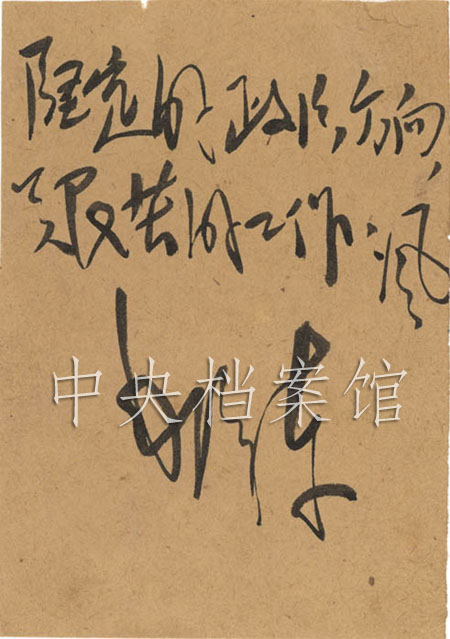 坚定的政治方向,
艰苦的工作作风
毛泽东
中央档案馆